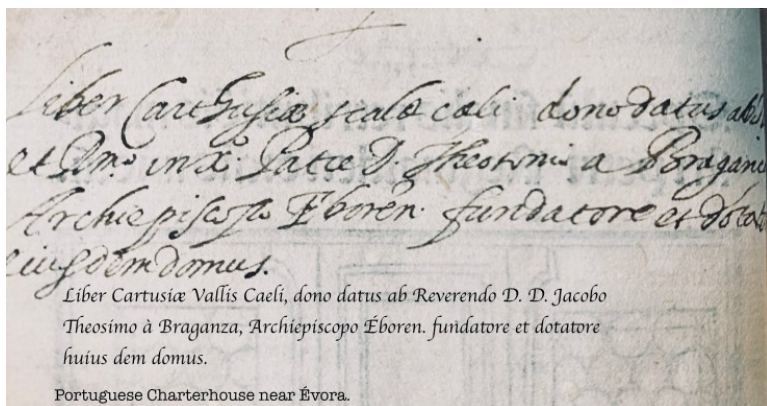 Liber Carthusiæ scalæ cæli dono datus ab
et in Xº. Patre D. Theotonio a
Archiepiscopo Eboren. fundatore et
eiusdem domus.
Liber Cartusiæ Vallis Caeli, dono datus ab Reverendo D. D. Jacobo
Theosimo à Braganza, Archiepiscopo Éboren. fundatore et dotatore
huius dem domus.
Portuguese Charterhouse near Évora.